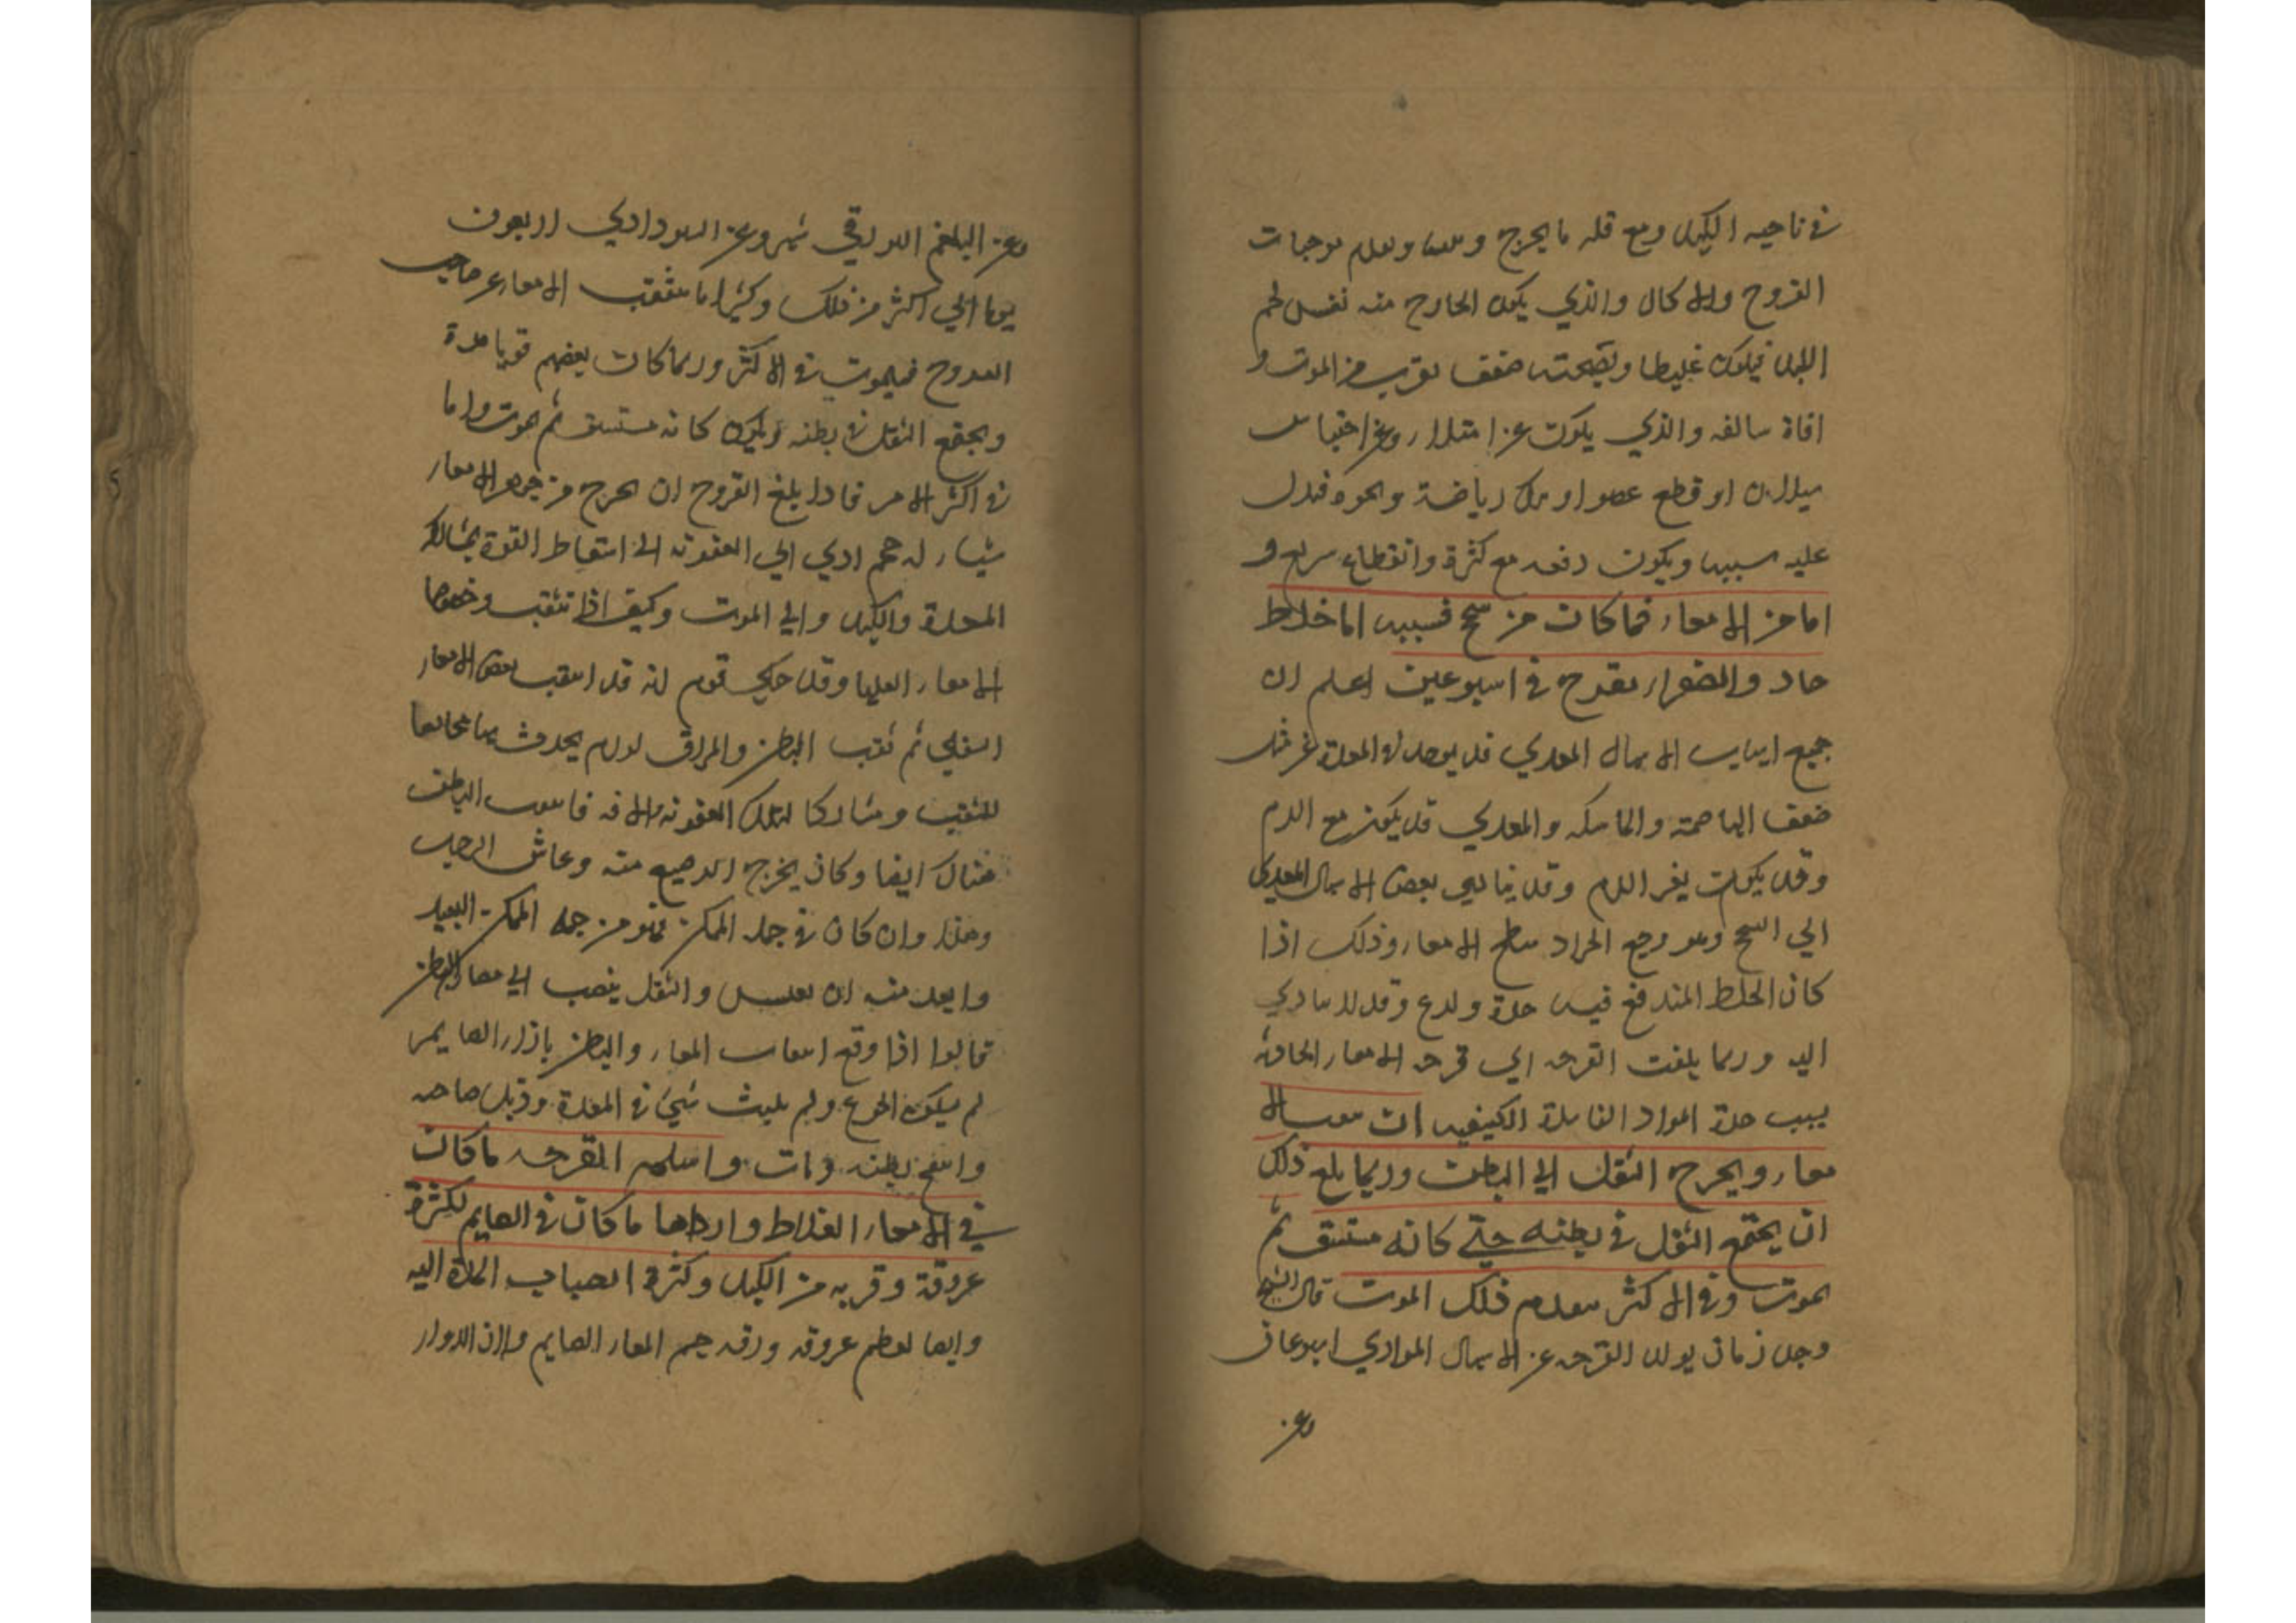 في ناحيه الكبد ومع قله ما يخرج وعدم موجبات
القروح والاكال والذي يكون الخارج منه نفس لحم
الكبد فيكون غليطا ويصحبه ضعف يقرب من الموت و
افاة سالفه والذي يكون عن امتلاء وعن احتباس
سيلان او قطع عضو او ترك رياضة ونحوه فيدل
عليه سببها ويكون دفعه مع كثرة وانقطاع سريع و
اما من الامعاء فما كان من سحج فسببه اما خلاط
حاد والصفراء يقرح في اسبوعين اعلم ان
جميع اسباب الاسهال المعدي قد يوجد في المعدة
ضعف الهاضمة والماسكه والمعدي قد يكون مع الدم
وقد يكون بغير الدم وقد يتأدي بعض الاسهال المعدي
الي السحج وهو وجع انجراد سطح الامعاء وذلك اذا
كان الخلط المندفع فيه حدة ولدع وقد لا يتادي
اليه وربما بلغت القرحه الي قرحه الامعاء
بسبب حدة المواد الفاسدة الكيفيه ان
معاء ويخرج الثقل الي البطن وربما بلغ ذلك
ان يجتمع الثقل في بطنه حتي كانه مستسق ثم
يموت وفي الاكثر يتقدم ذلك الموت قال الشيخ
وجل زمان يولد القرحه عن الاسهال المواري اسبوعان
وعن
وعن البلغم البورقي شهر وعن السوداوي اربعون
يوما الي اكثر من ذلك وكثيرا ما يثقب الامعاء عن صاحب
القروح فيموت في الاكثر وربما كان بعضهم قويا مدة
ويجتمع الثقل في بطنه ويكون كانه مستسق ثم يموت واما
في اكثر الامر فاذا بلغ القروح ان يخرج من جوهر الامعاء
شياء له حجم ادي الي العفونه الي اسقاط القوة بمشاركه
المعدة والكبد والي الموت وكيف اذا تثقب وخصوصا
الامعاء العليا وقد حكي قوم انه قد انثقب بعض الامعاء
السفلي ثم ثقب البطن والمراق لورم يحدث بها محاذيا
للثقب ومشاركا لتلك العفونه والافه فانثقب البطن
هناك ايضا وكان يخرج الرجيع منه وعاش الرجل
وهذا وان كان في جمله الممكن فهو من جمله الممكن البعيد
وابعد منه ان يعيش والثقل ينصب الي معاء البطن
قالوا اذا وقع انثقاب المعاء والبطن بازاء الصايم
لم يسكن الجوع ولم يلبث شي في المعدة وذبل صاحبه
وانتفخ بطنه ومات واسلم القرحه ما كان
في الامعاء الغلاط وارداها ما كان في الصايم لكثرة
عروقه وقربه من الكبد وكثرة انصباب الحادة اليه
وايضا لعظم عروقه ورقه جسم المعاء الصايم